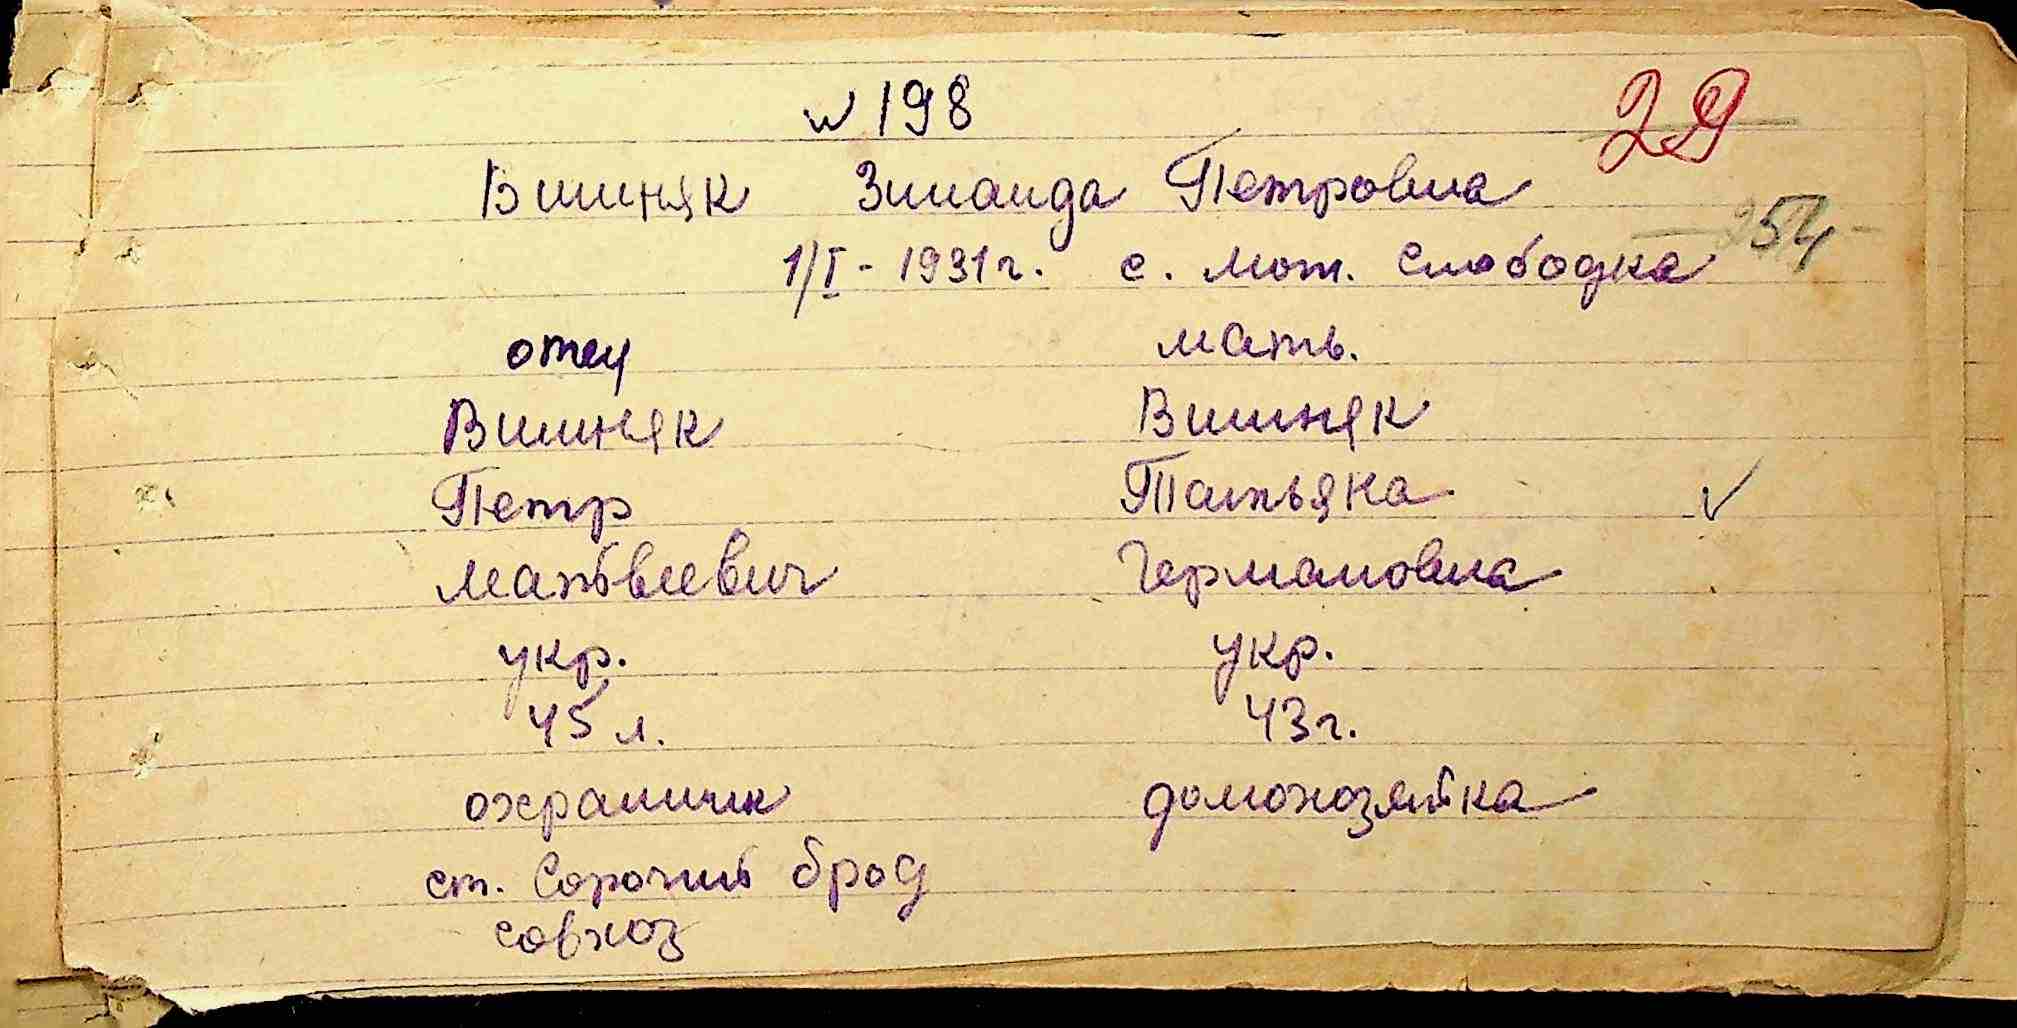 № 198
29
Вишняк Зинаида Петровна
1/I - 1931 г. с. Мот. Слободка
254
отец мать.
Вишняк Вишняк
Петр Татьяна
Матвеевич Германовна
укр. укр.
45 л. 43 г.
охранник домохозяйка
ст. Сорочий брод
совхоз